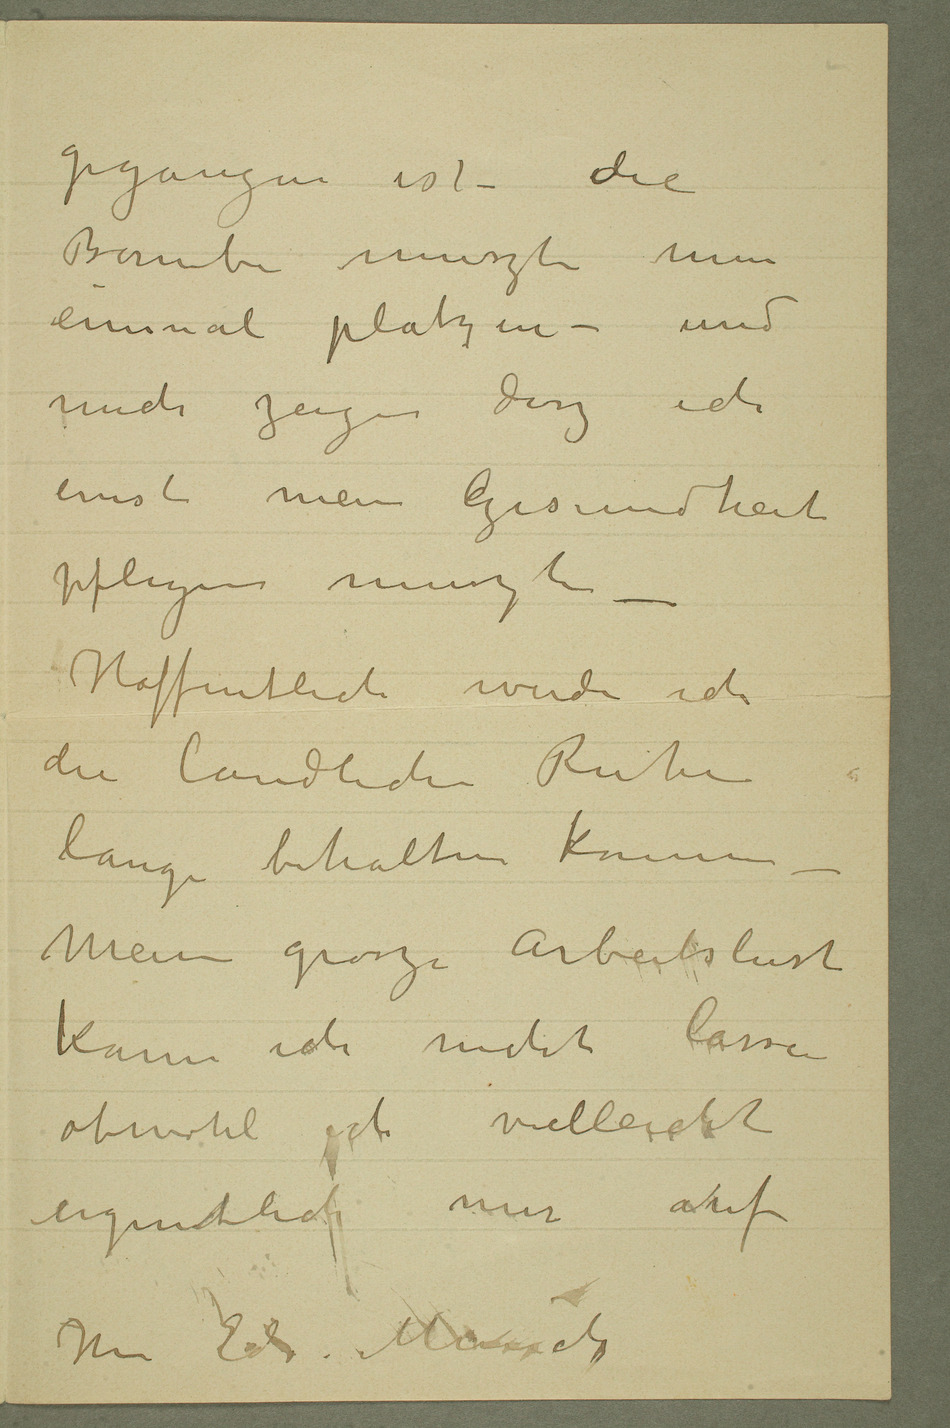 gegangen ist – die
Bombe muszte nun
einmal platzen – und
mich zeigen dasz ich
einst mein Gesundheit
pflegen muszte –
Hoffentlich werde ich
die landliche Ruhe
lange behalten konnen –
Meine grosze Arbeitslust
kann ich nicht lassen
obwohl ich vielleicht
eigentlich nur auf
Ihr Edv. Munch